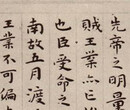 先帝之明量
賊王業亦亡
也臣受命之
南故五月渡
王業不可偏